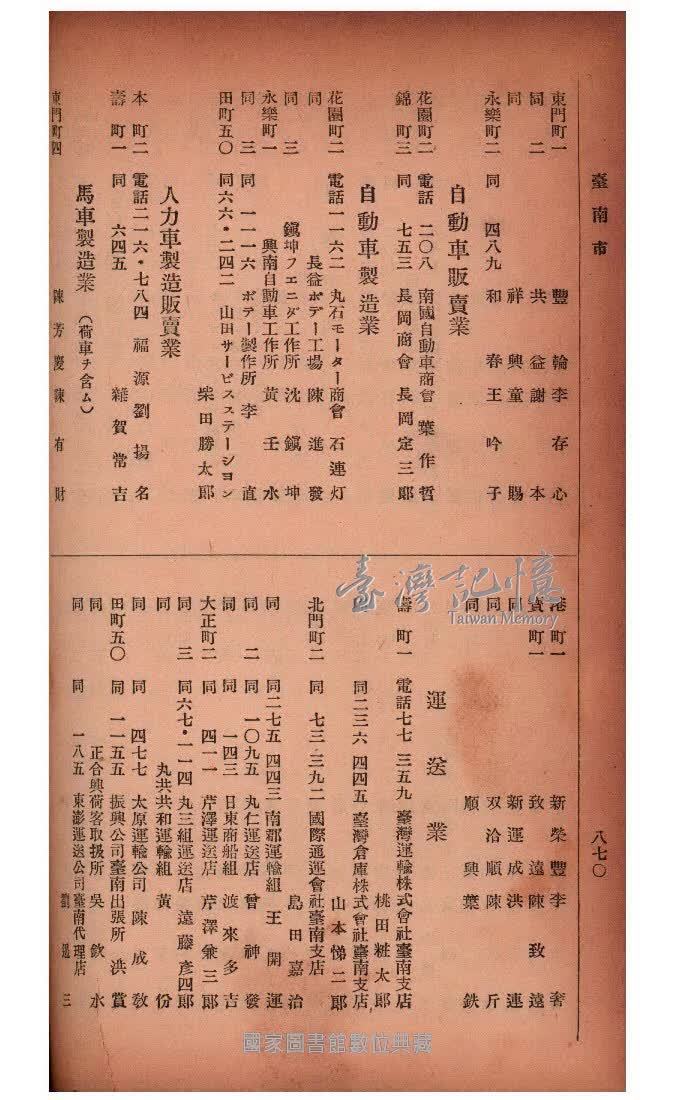 臺南市
八七〇
東門町一 豐輪 李存心
同 二 共益 謝本
同 祥興 童賜
永樂町二 同 四八九 和春 王吟子
自動車販賣業
花園町二 電話 二〇八 南國自動車商會 葉作哲
錦町三 同 七五三 長岡商會 長岡定三郎
自動車製造業
花園町二 電話一一六二 丸石モーター商會 石連灯
同 長益ボデー工場 陳進發
同 三 鎭坤フエニダ工作所 沈鎭坤
永樂町一 興南自動車工作所 黃壬水
同 三 同 一一一六 ボデー製作所 李直
田町五〇 同六六・二四二 山田サービスステーション
柴田勝太郎
人力車製造販賣業
本町二 電話二一六・七八四 福源 劉揚名
壽町一 同 六四五 雜賀常吉
馬車製造業（荷車ヲ含ム）
東門町四 陳芳慶 陳有財
港町一 新榮豐 李奢
寶町一 致遠 陳致遠
同 新運成 洪連
同 双洽順 陳斤
同 順興 葉鉄
運送業
壽町一 電話七七 三五九 臺灣運輸株式會社臺南支店
桃田粧太郎
同 同二三六 四四五 臺灣倉庫株式會社臺南支店
山本悌二郎
北門町二 同 七三 三九二 國際通運會社臺南支店
島田嘉治
同 同二七五 四四三 南郡運輸組 王開運
同 二 同 一〇九五 丸仁運送店 曾神發
同 同 一四三 日東商船組 渡來多吉
大正町二 同 四一一 芹澤運送店 芹澤兼三郎
同 三 同六七・一一四 丸三組運送店 遠藤彦四郎
同 丸共共和運輸組 黃份
同 同 四七七 太原運輸公司 陳成敎
田町五〇 同 一一五五 振興公司臺南出張所 洪賞
同 正合興荷客取扱所 吳欽水
同 同 一八五 東澎運送公司臺南代理店
劉 三
臺灣記憶
Taiwan Memory
國家圖書館數位典藏